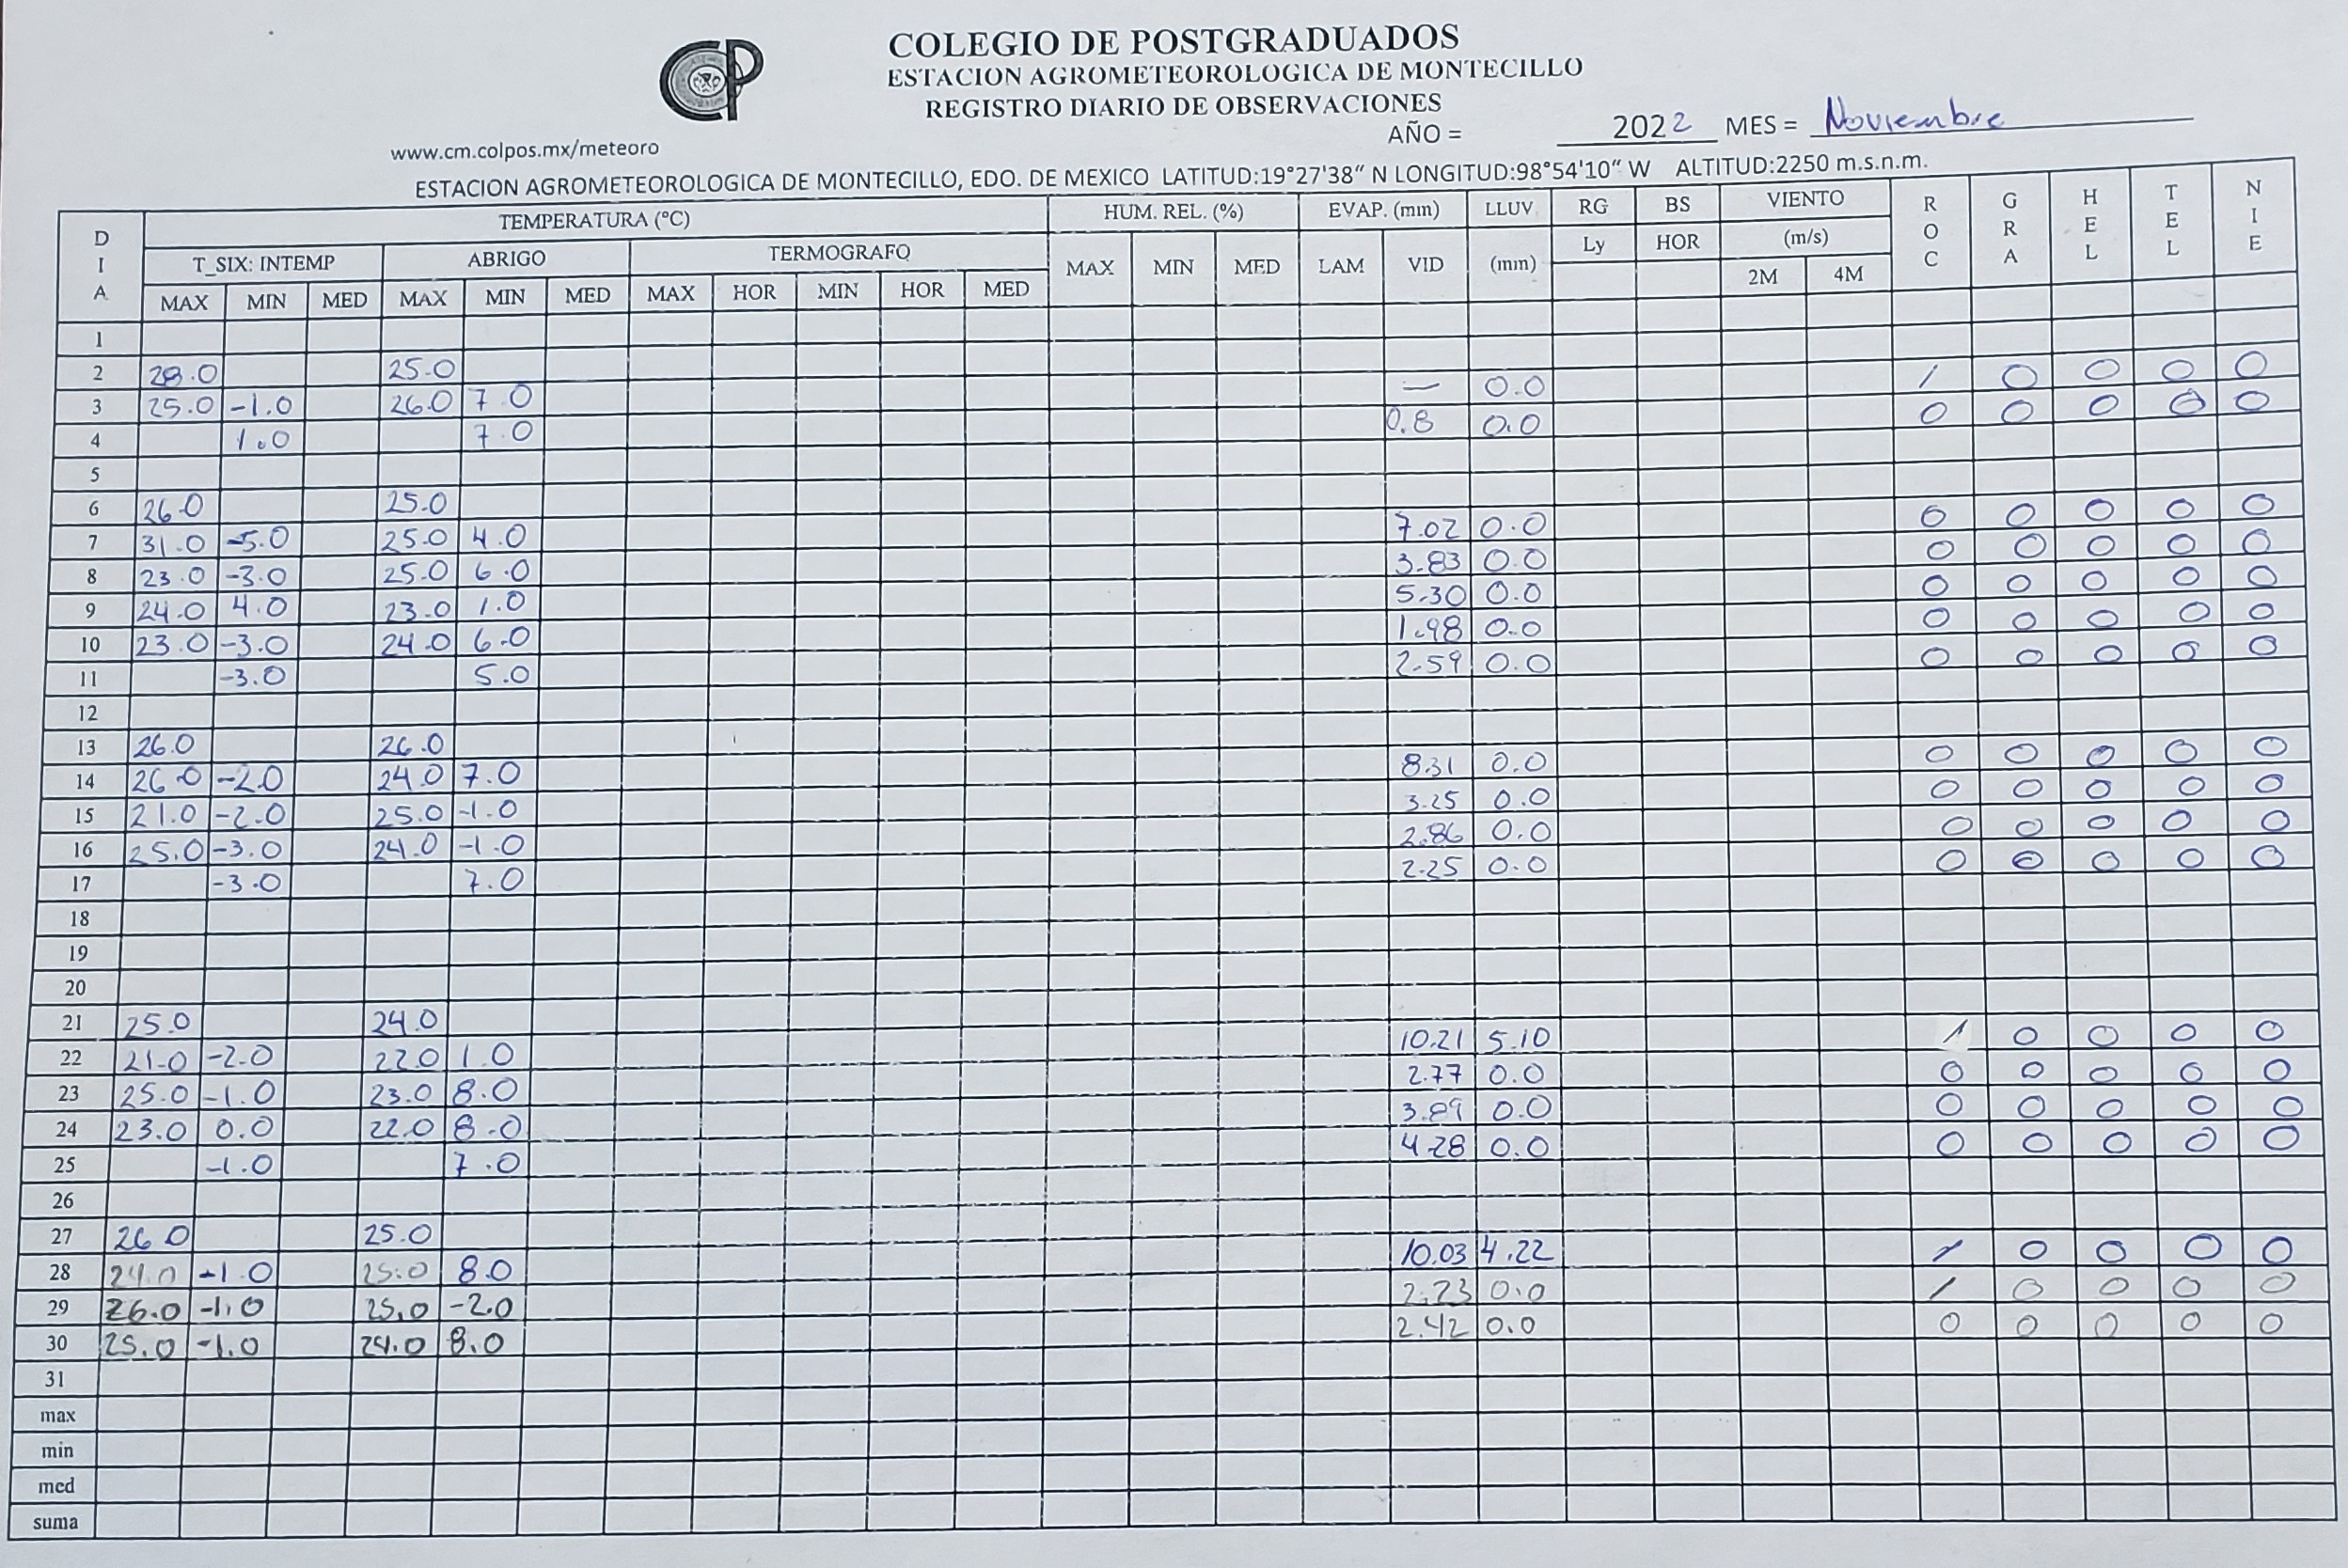 COLEGIO DE POSTGRADUADOS
ESTACION AGROMETEOROLOGICA DE MONTECILLO
REGISTRO DIARIO DE OBSERVACIONES
CP
www.cm.colpos.mx/meteoro
AÑO = 2022 MES = Noviembre
ESTACION AGROMETEOROLOGICA DE MONTECILLO, EDO. DE MEXICO LATITUD:19°27'38" N LONGITUD:98°54'10" W ALTITUD:2250 m.s.n.m.
DIA TEMPERATURA (°C) HUM. REL. (%) EVAP. (mm) LLUV RG BS VIENTO ROC GRA HEL TEL NIE
T_SIX: INTEMP ABRIGO TERMOGRAFO MAX MIN MED LAM VID (mm) Ly HOR (m/s)
MAX MIN MED MAX MIN MED MAX HOR MIN HOR MED 2M 4M
1
2 28.0 25.0
3 25.0 -1.0 26.0 7.0 — 0.0 / 0 0 0 0
4 1.0 7.0 0.8 0.0 0 0 0 0 0
5
6 26.0 25.0
7 31.0 -5.0 25.0 4.0 7.02 0.0 0 0 0 0 0
8 23.0 -3.0 25.0 6.0 3.83 0.0 0 0 0 0 0
9 24.0 4.0 23.0 1.0 5.30 0.0 0 0 0 0 0
10 23.0 -3.0 24.0 6.0 1.98 0.0 0 0 0 0 0
11 -3.0 5.0 2.59 0.0 0 0 0 0 0
12
13 26.0 26.0
14 26.0 -2.0 24.0 7.0 8.31 0.0 0 0 0 0 0
15 21.0 -2.0 25.0 -1.0 3.25 0.0 0 0 0 0 0
16 25.0 -3.0 24.0 -1.0 2.86 0.0 0 0 0 0 0
17 -3.0 7.0 2.25 0.0 0 0 0 0 0
18
19
20
21 25.0 24.0
22 21.0 -2.0 22.0 1.0 10.21 5.10 1 0 0 0 0
23 25.0 -1.0 23.0 8.0 2.77 0.0 0 0 0 0 0
24 23.0 0.0 22.0 8.0 3.89 0.0 0 0 0 0 0
25 -1.0 7.0 4.28 0.0 0 0 0 0 0
26
27 26.0 25.0
28 24.0 -1.0 25.0 8.0 10.03 4.22 1 0 0 0 0
29 26.0 -1.0 25.0 -2.0 2.73 0.0 / 0 0 0 0
30 25.0 -1.0 24.0 8.0 2.42 0.0 0 0 0 0 0
31
max
min
med
suma